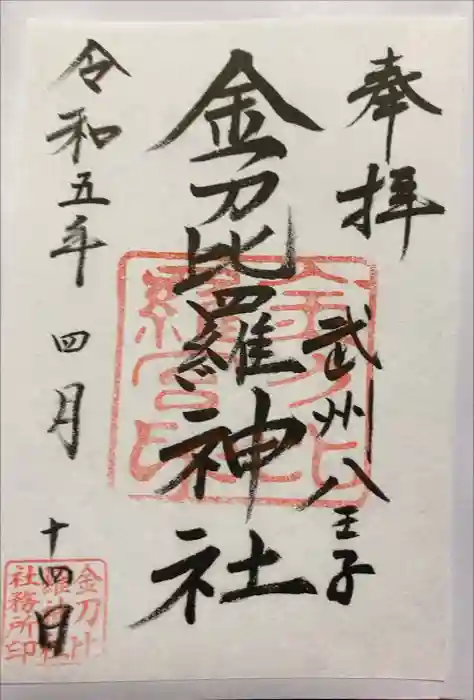 奉拝
武州八王子
金刀比羅神社
令和五年 四月 十四日
金刀比
羅神社
社務所印